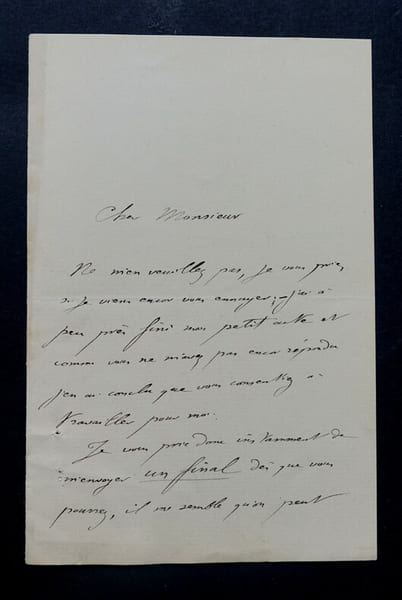 Cher Monsieur
Ne m'en veuillez pas, je vous prie,
si je viens encor vous ennuyer; j'ai à
peu près fini mon petit acte et
comme vous ne m'avez pas encor répondu
j'en ai conclu que vous consentez à
travailler pour moi.
Je vous prie donc instamment de
m'envoyer un final dès que vous
pourrez, il me semble qu'on peut